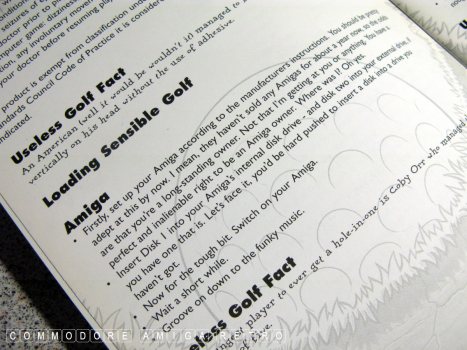 computer game dizziness
or, or involuntary
your doctor before resuming play
product is exempt from classification under
standards Council Code of Practice it is considered
indicated.
Useless Golf Fact
An American well it would be wouldn't it) managed to
vertically on his head without the use of adhesive.
Loading Sensible Golf
Amiga
• Firstly, set up your Amiga according to the manufacturers instructions. You should be pretty
adept at this by now. I mean, they haven't sold any Amigas for about a year now, so the odds
are that you're a long-standing owner. Not that I'm getting at you or anything. You have a
perfect and inalienable right to be an Amiga owner. Where was I? Oh yet.
• Insert Disk 1 into your Amiga's internal disk drive - and disk two into your external drive if
you have one that is. Let's face it, you'd be hard pushed to insert a disk into a drive you
haven't got.
• Now for the tough bit. Switch on your Amiga.
• Wait a short while.
• Groove on down to the funky music.
Useless Golf Fact
player to ever get a hole-in-one is Coby Orr who managed
of five.
COMMODORE AMIGA RETRO